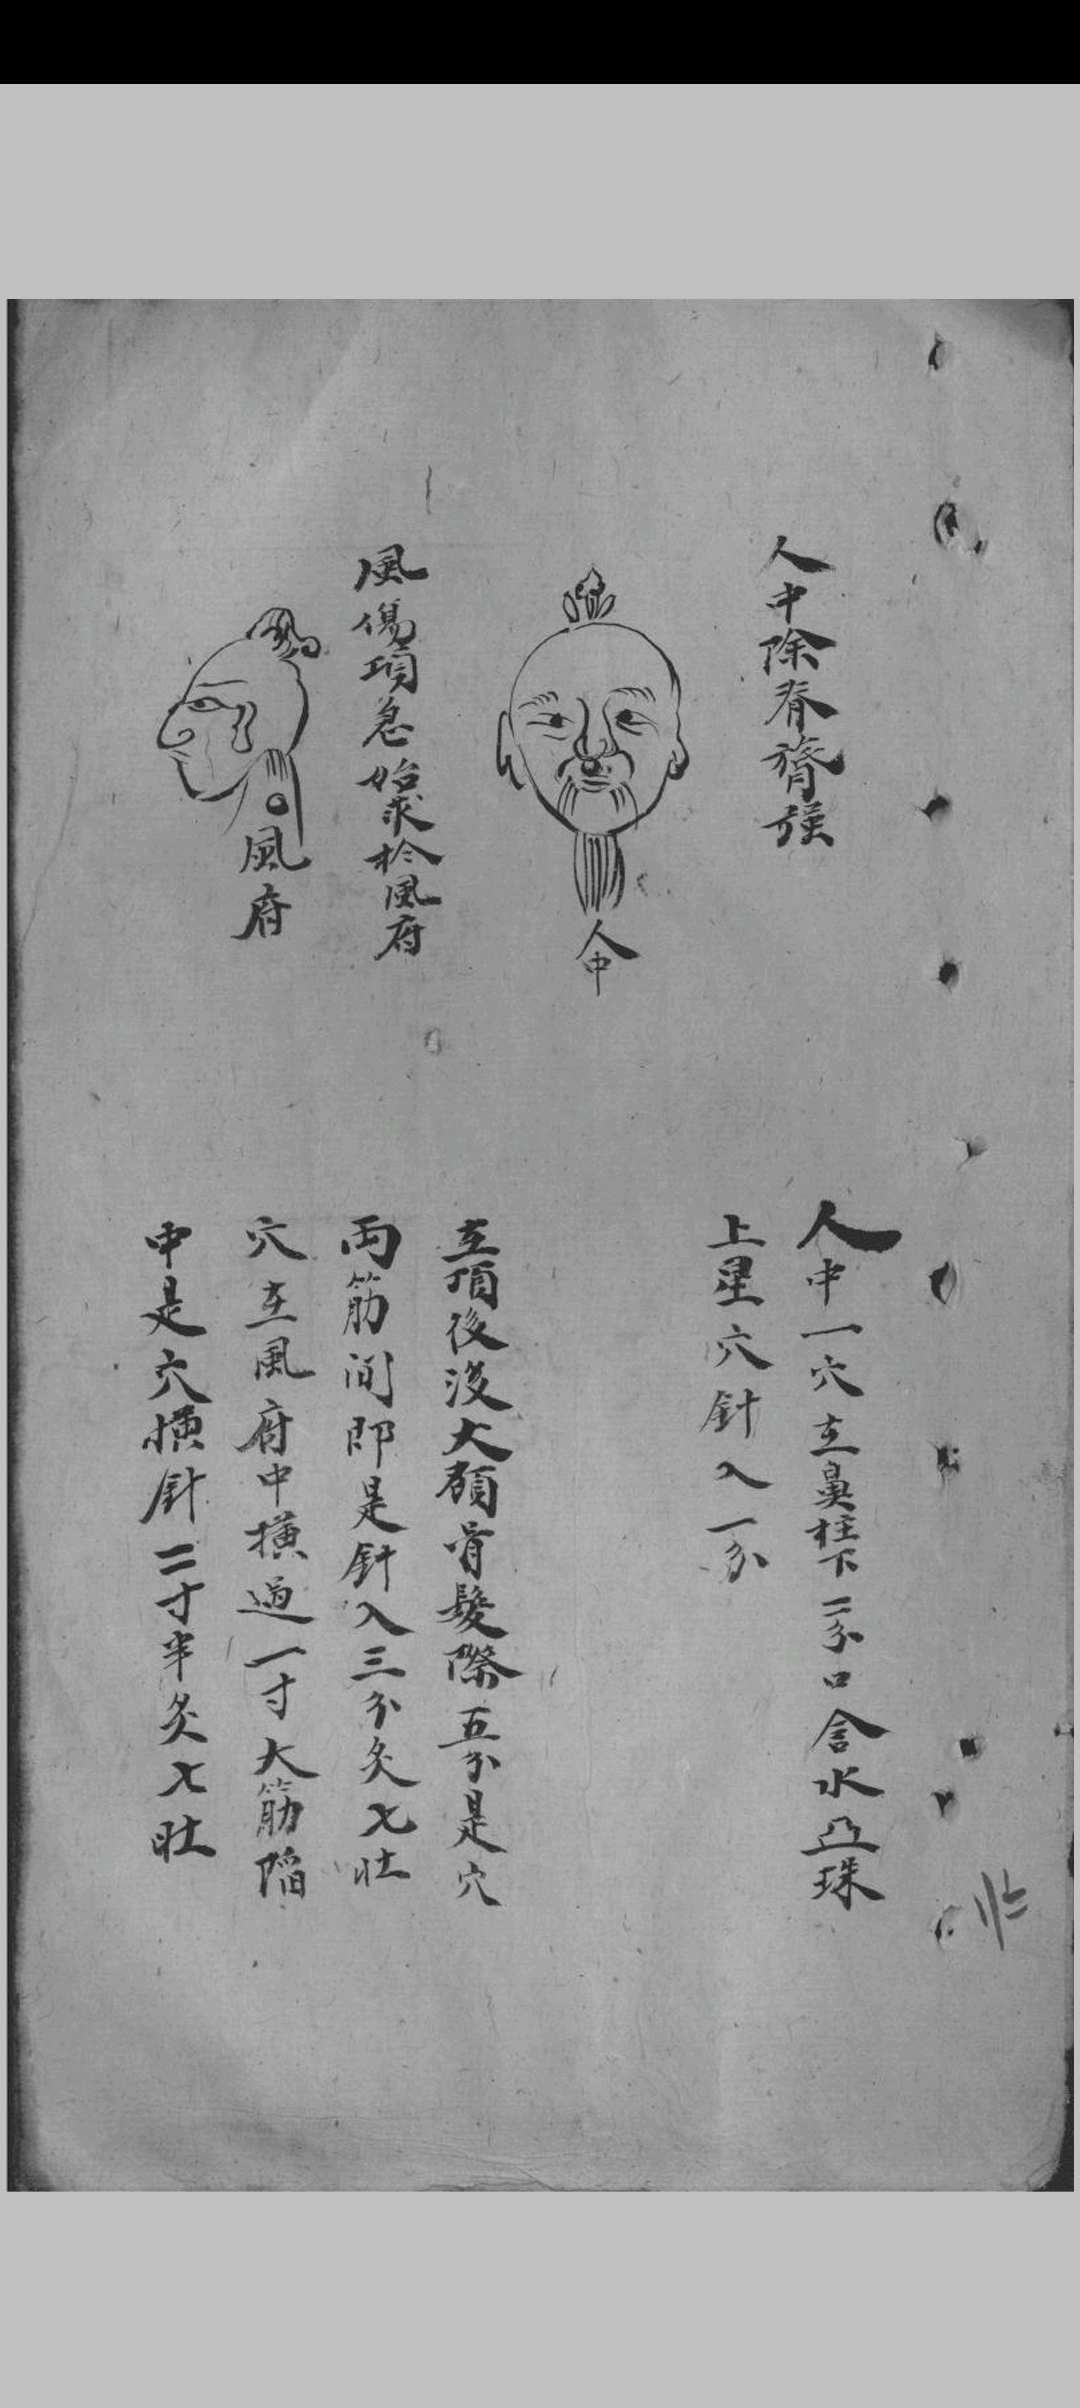 人中除脊膂強
人中
風傷項急始求於風府
風府
人中一穴在鼻柱下三分口含水凸珠
上星穴針入一分
在項後沒大顏骨髮際五分是穴
兩筋間即是針入三分灸七壯
穴在風府中橫過一寸大筋陷
中是穴橫針二寸半灸七壯